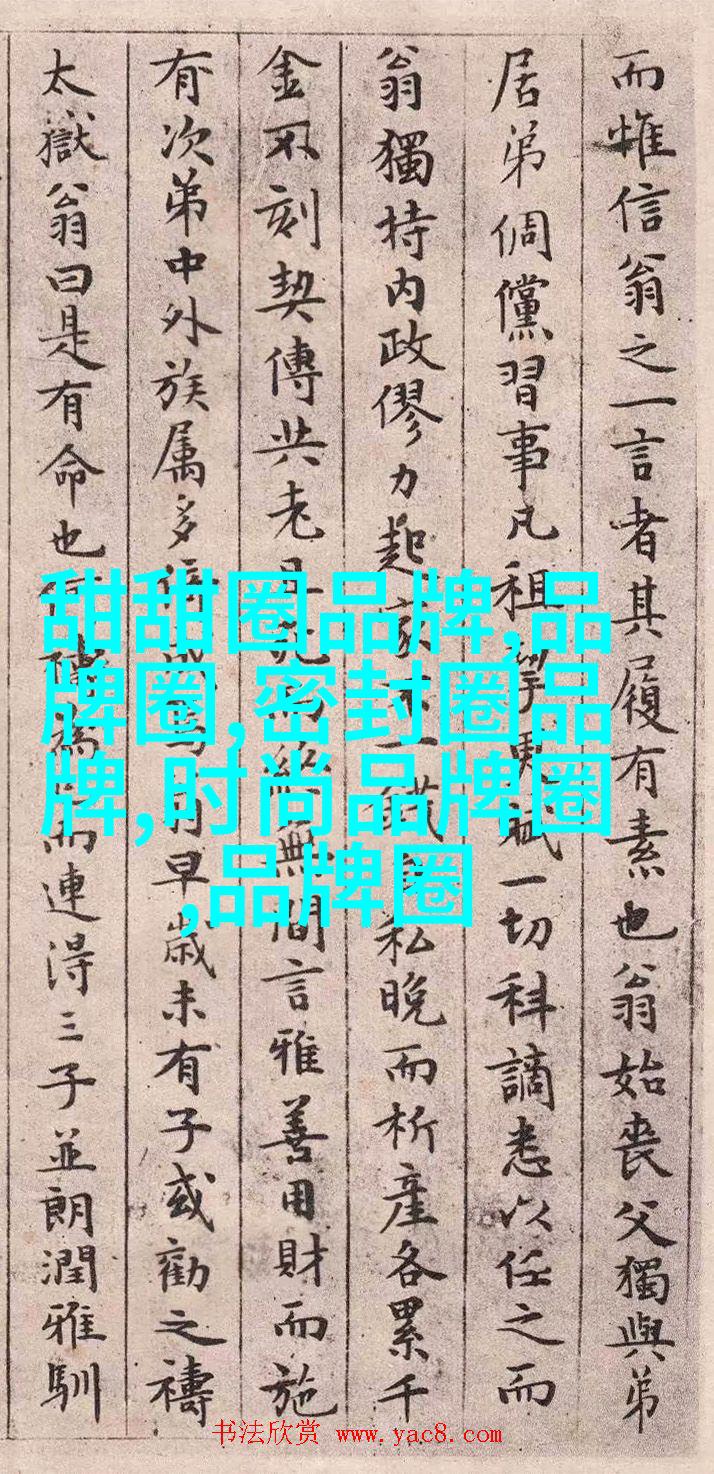 而惟信翁之一言者其履有素也翁始喪父獨與弟
居弟倜儻習事凡租更賦一切科謫悉以任之而
翁獨持内政僇力起一私晚而析產各累千
金不刻契傳共老絕無間言雅善用財而施
有次弟中外族属多早歲未有子或勸之禱
太嶽翁曰是有命也禱為而連得三子並朗潤雅馴
甜甜圈品牌,品
牌圈,密封圈品
牌,时尚品牌圈
,品牌圈
书法欣赏 www.yac8.com